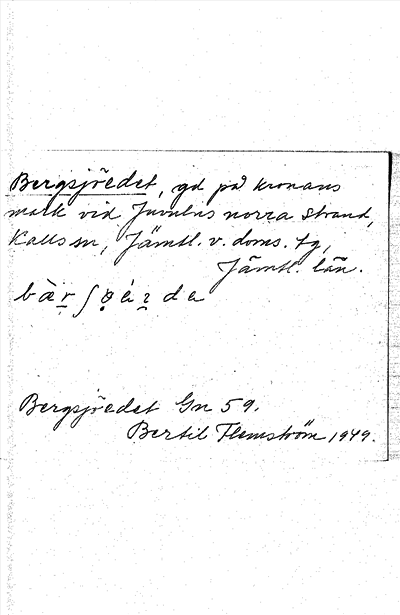 Bergsjöedet, gd på kronans
mark vid Juvulns norra strand,
Kalls sn, Jämtl. v. doms. tg,
Jämtl. län.
Bergsjöedet Gn 59.
Bertil Flemström 1949.